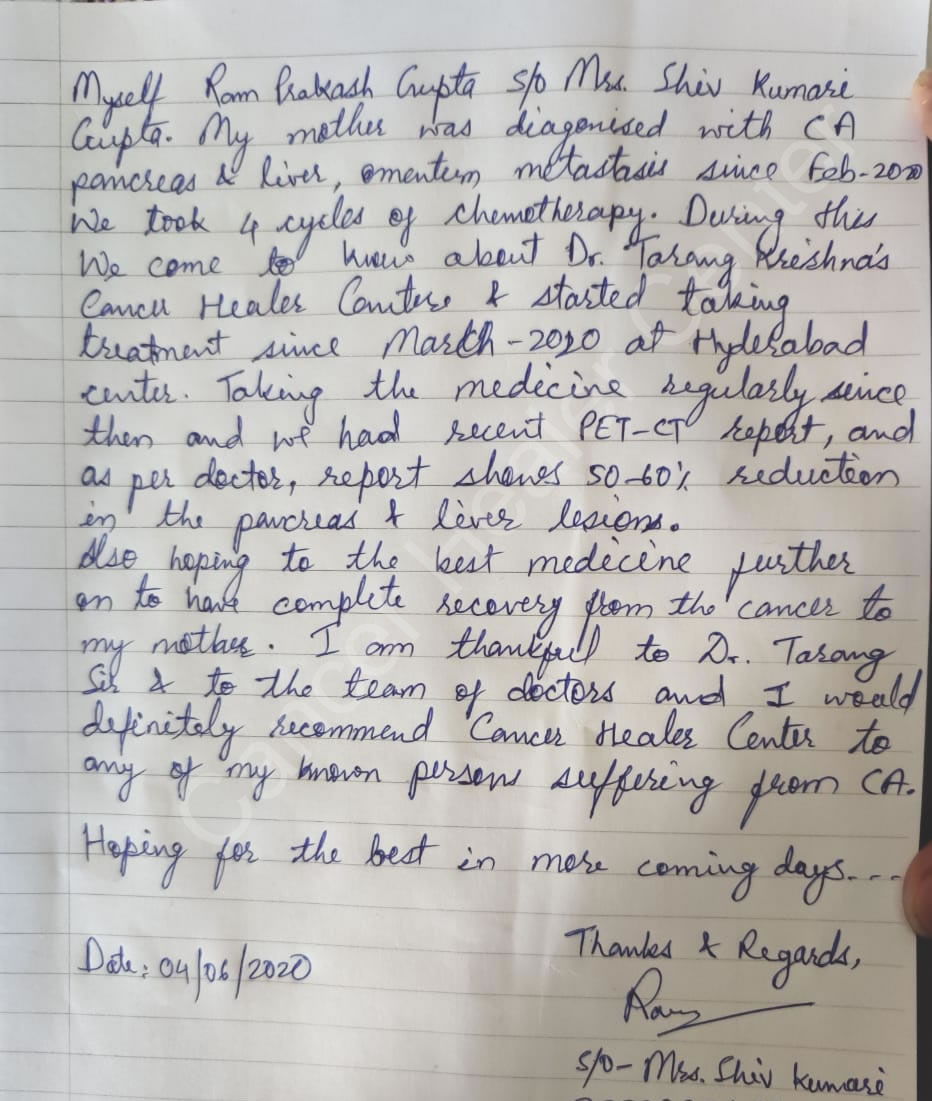 Myself Ram Prakash Gupta s/o Mrs. Shiv Kumari
Gupta. My mother was diagonised with CA
pancreas & liver, omentum metastasis since Feb-2020
We took 4 cycles of chemotherapy. During this
We come to know about Dr. Tarang Krishna's
Cancer Healer Centere & started taking
treatment since March-2020 at Hyderabad
center. Taking the medicine regularly since
then and we had recent PET-CT report, and
as per doctor, report shows 50-60% reduction
in the pancreas & liver lesions.
Also hoping to the best medicine further
on to have complete recovery from the cancer to
my mother. I am thankful to Dr. Tarang
Sir & to the team of doctors and I would
definitely recommend Cancer Healer Center to
any of my known persons suffering from CA.
Hoping for the best in more coming days....
Date: 04/06/2020
Thanks & Regards,
Ram
s/o- Mrs. Shiv Kumari
Cancer Healer Center